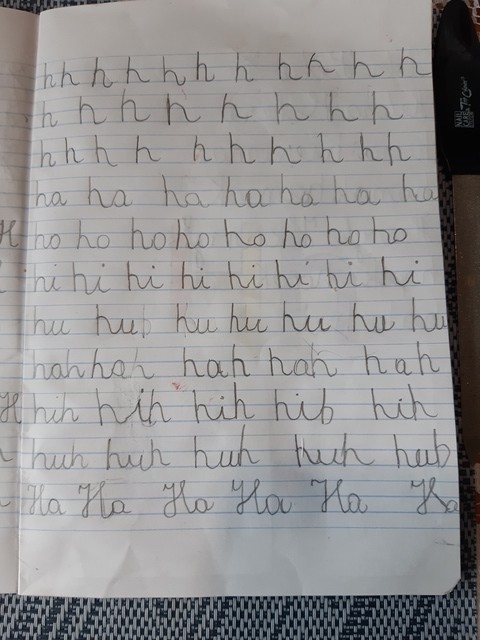 h h h h h h h h h h h
h h h h h h h h
h h h h h h h h h h
ha ha ha ha ha ha ha
ho ho ho ho ho ho ho ho
hi hi hi hi hi hi hi hi
hu hu hu hu hu hu hu
hah hah hah hah hah
hih hih hih hib hih
huh huh huh huh hub
Ha Ha Ha Ha Ha Ha